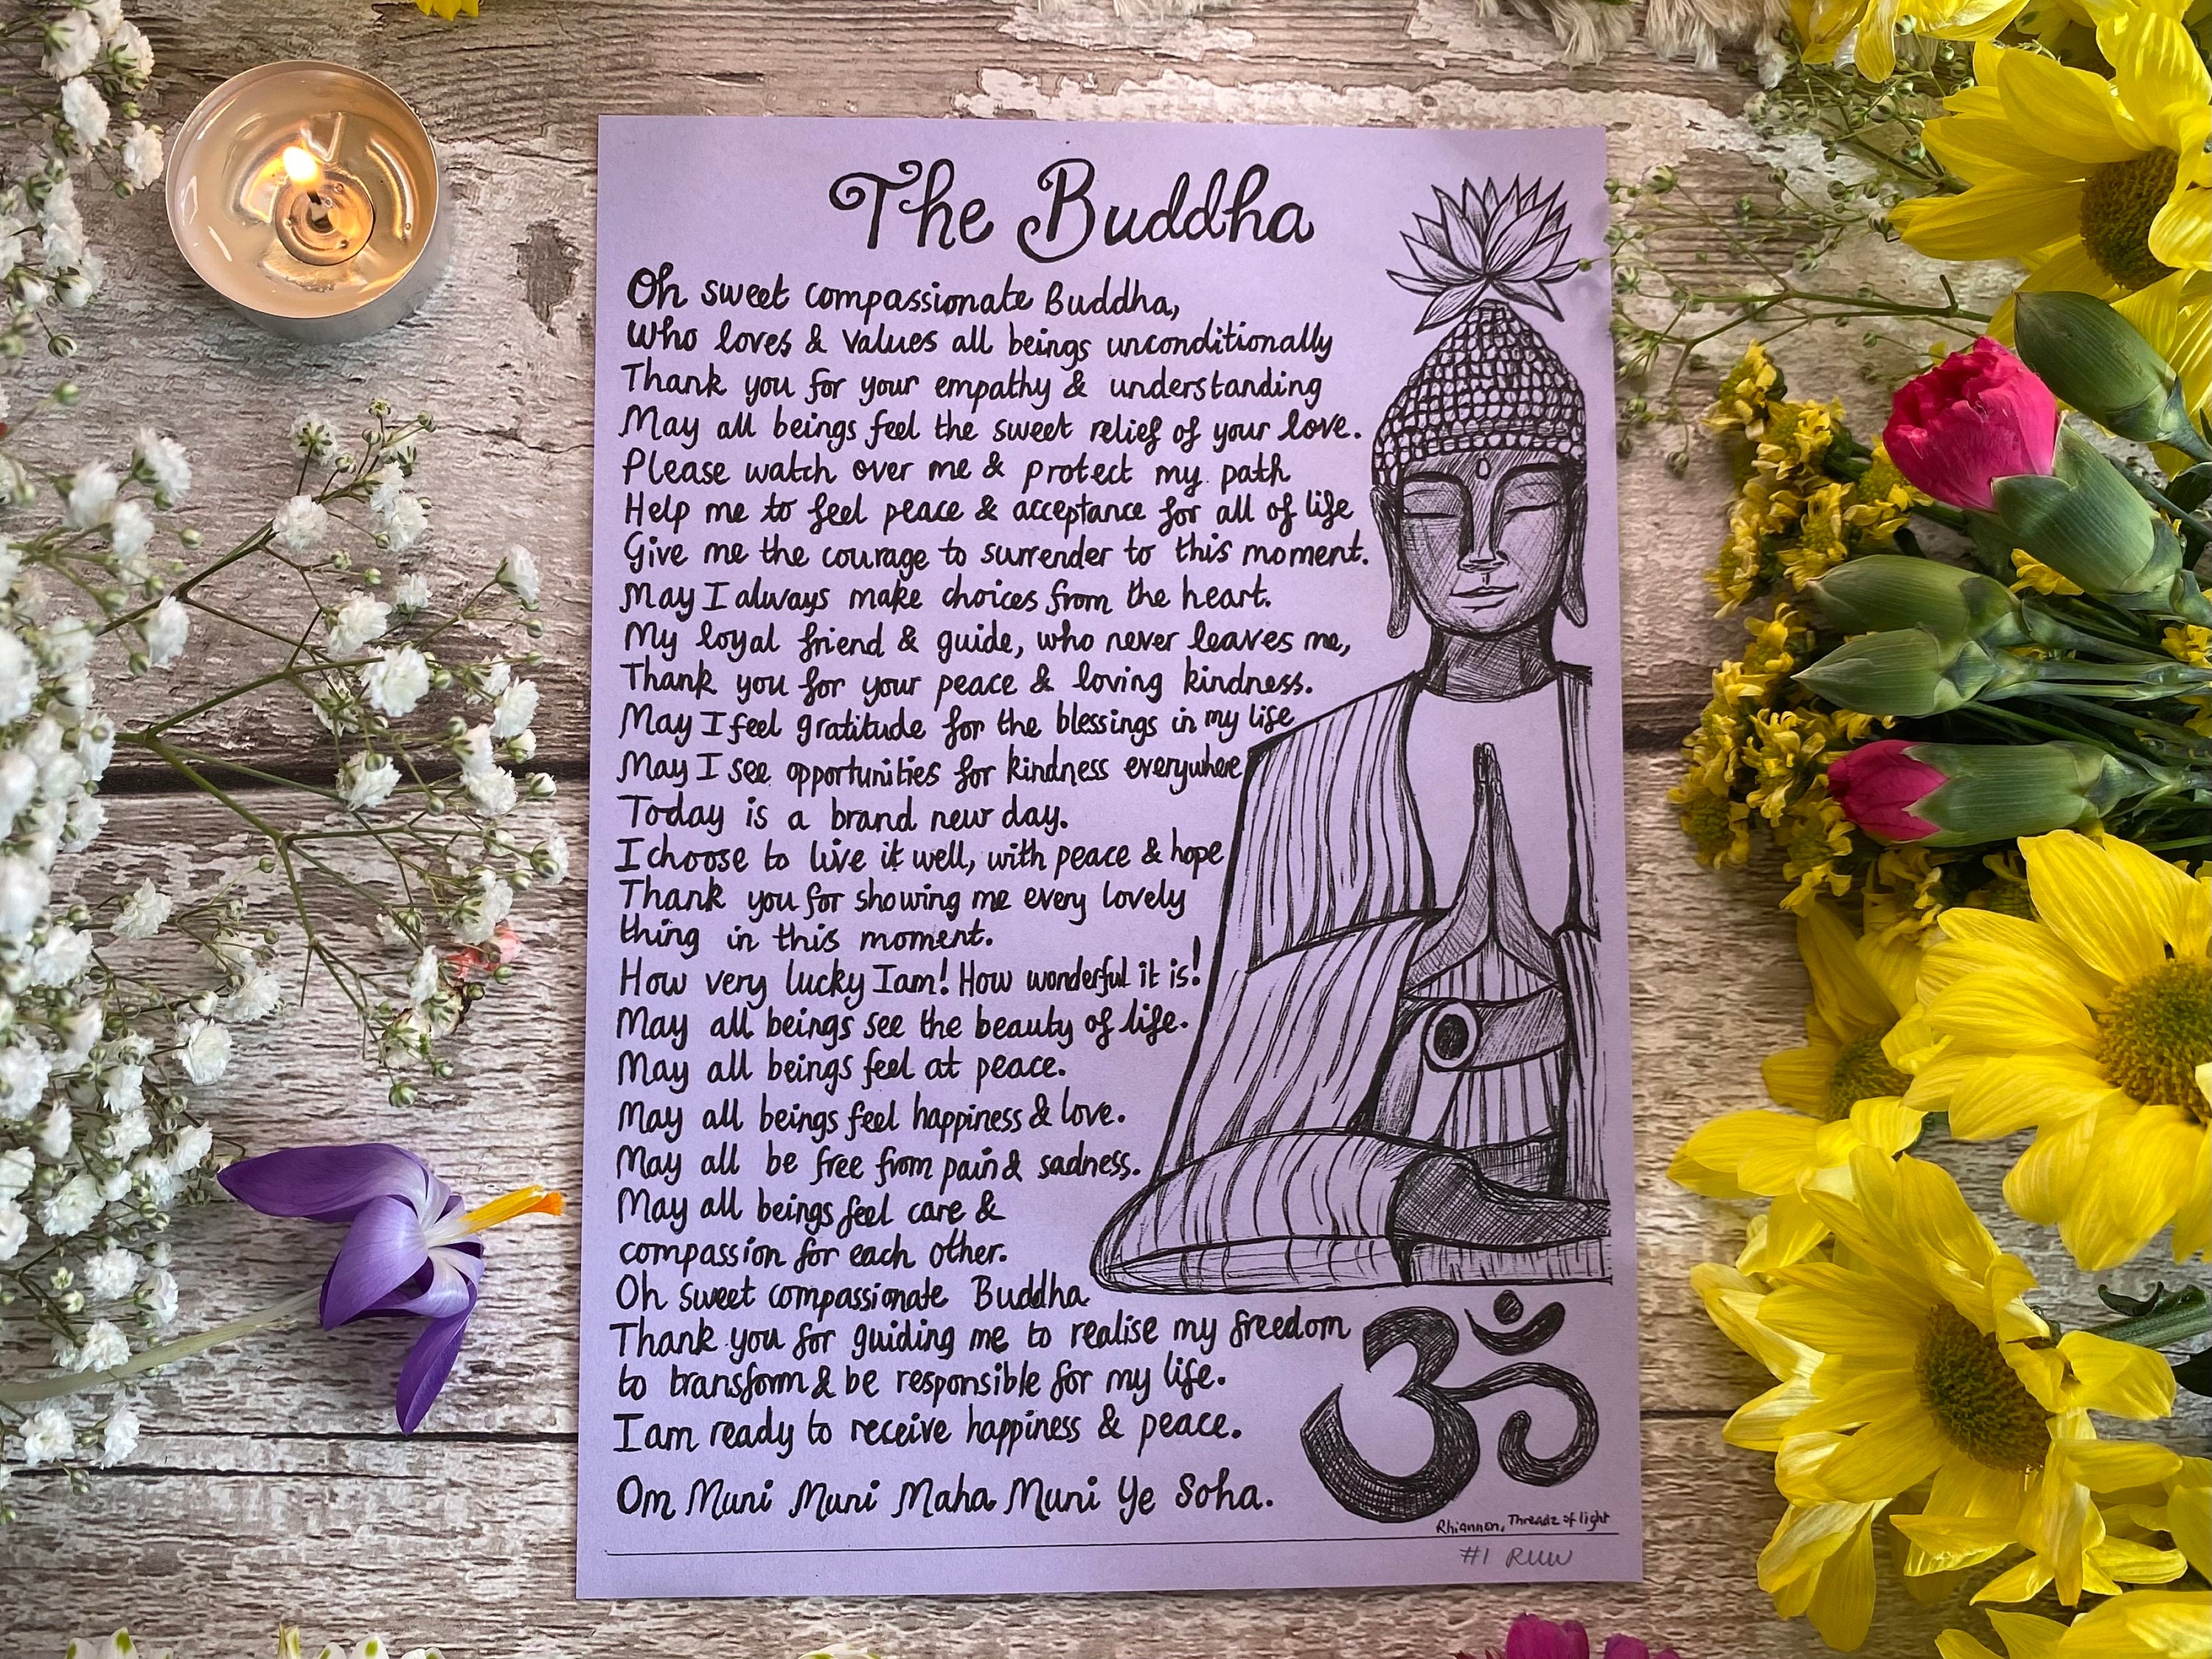 The Buddha
Oh sweet compassionate Buddha,
Who loves & values all beings unconditionally
Thank you for your empathy & understanding
May all beings feel the sweet relief of your love.
Please watch over me & protect my path
Help me to feel peace & acceptance for all of life
Give me the courage to surrender to this moment.
May I always make choices from the heart.
My loyal friend & guide, who never leaves me,
Thank you for your peace & loving kindness.
May I feel gratitude for the blessings in my life
May I see opportunities for kindness everywhere
Today is a brand new day.
I choose to live it well, with peace & hope
Thank you for showing me every lovely
thing in this moment.
How very lucky I am! How wonderful it is!
May all beings see the beauty of life.
May all beings feel at peace.
May all beings feel happiness & love.
May all be free from pain & sadness.
May all beings feel care &
compassion for each other.
Oh sweet compassionate Buddha
Thank you for guiding me to realise my freedom
to transform & be responsible for my life.
I am ready to receive happiness & peace.
Om Muni Muni Maha Muni Ye Soha.
ॐ
Rhiannon, Threadz of light
#1